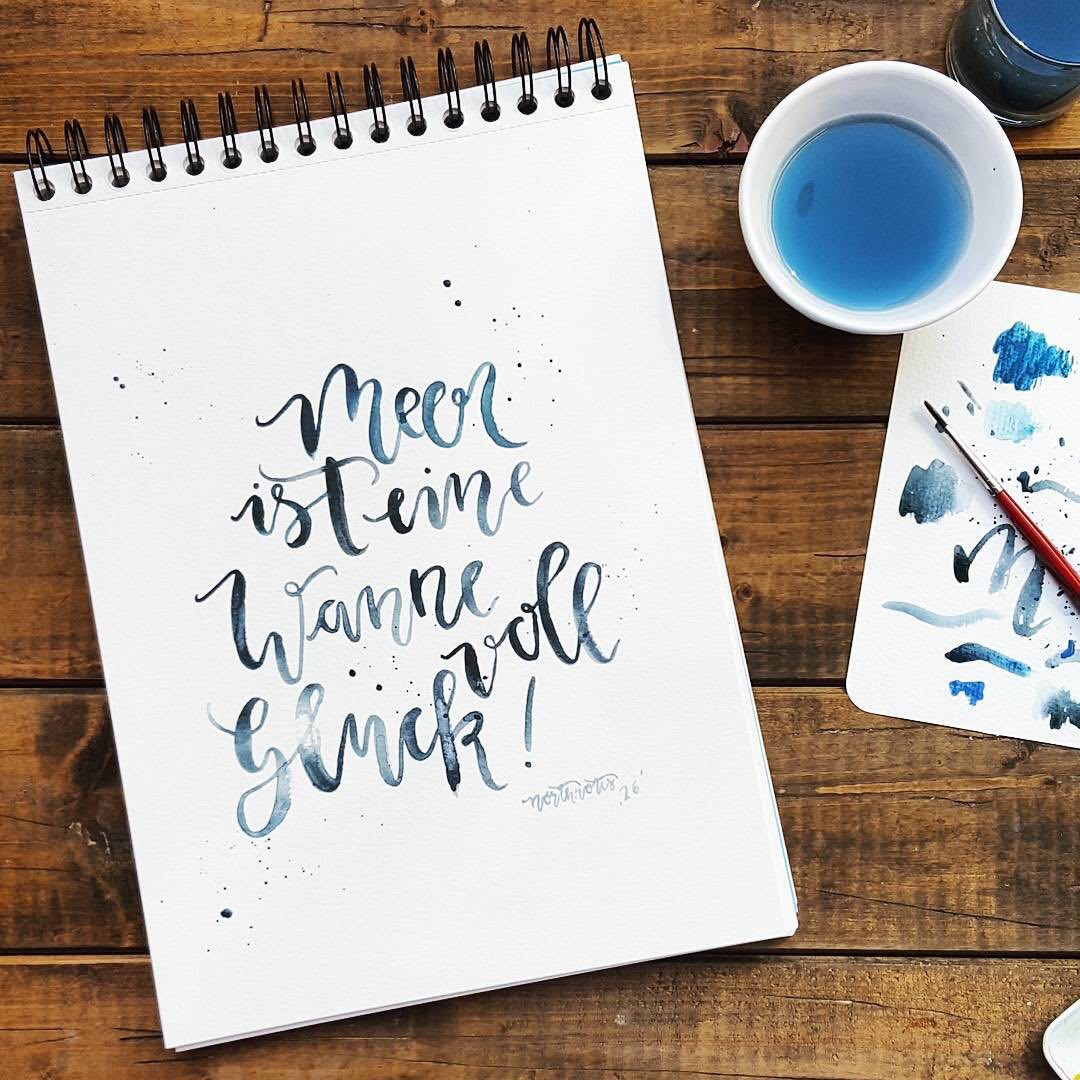 Meer
ist eine
Wanne
voll
Gluck!
northrotis '26'